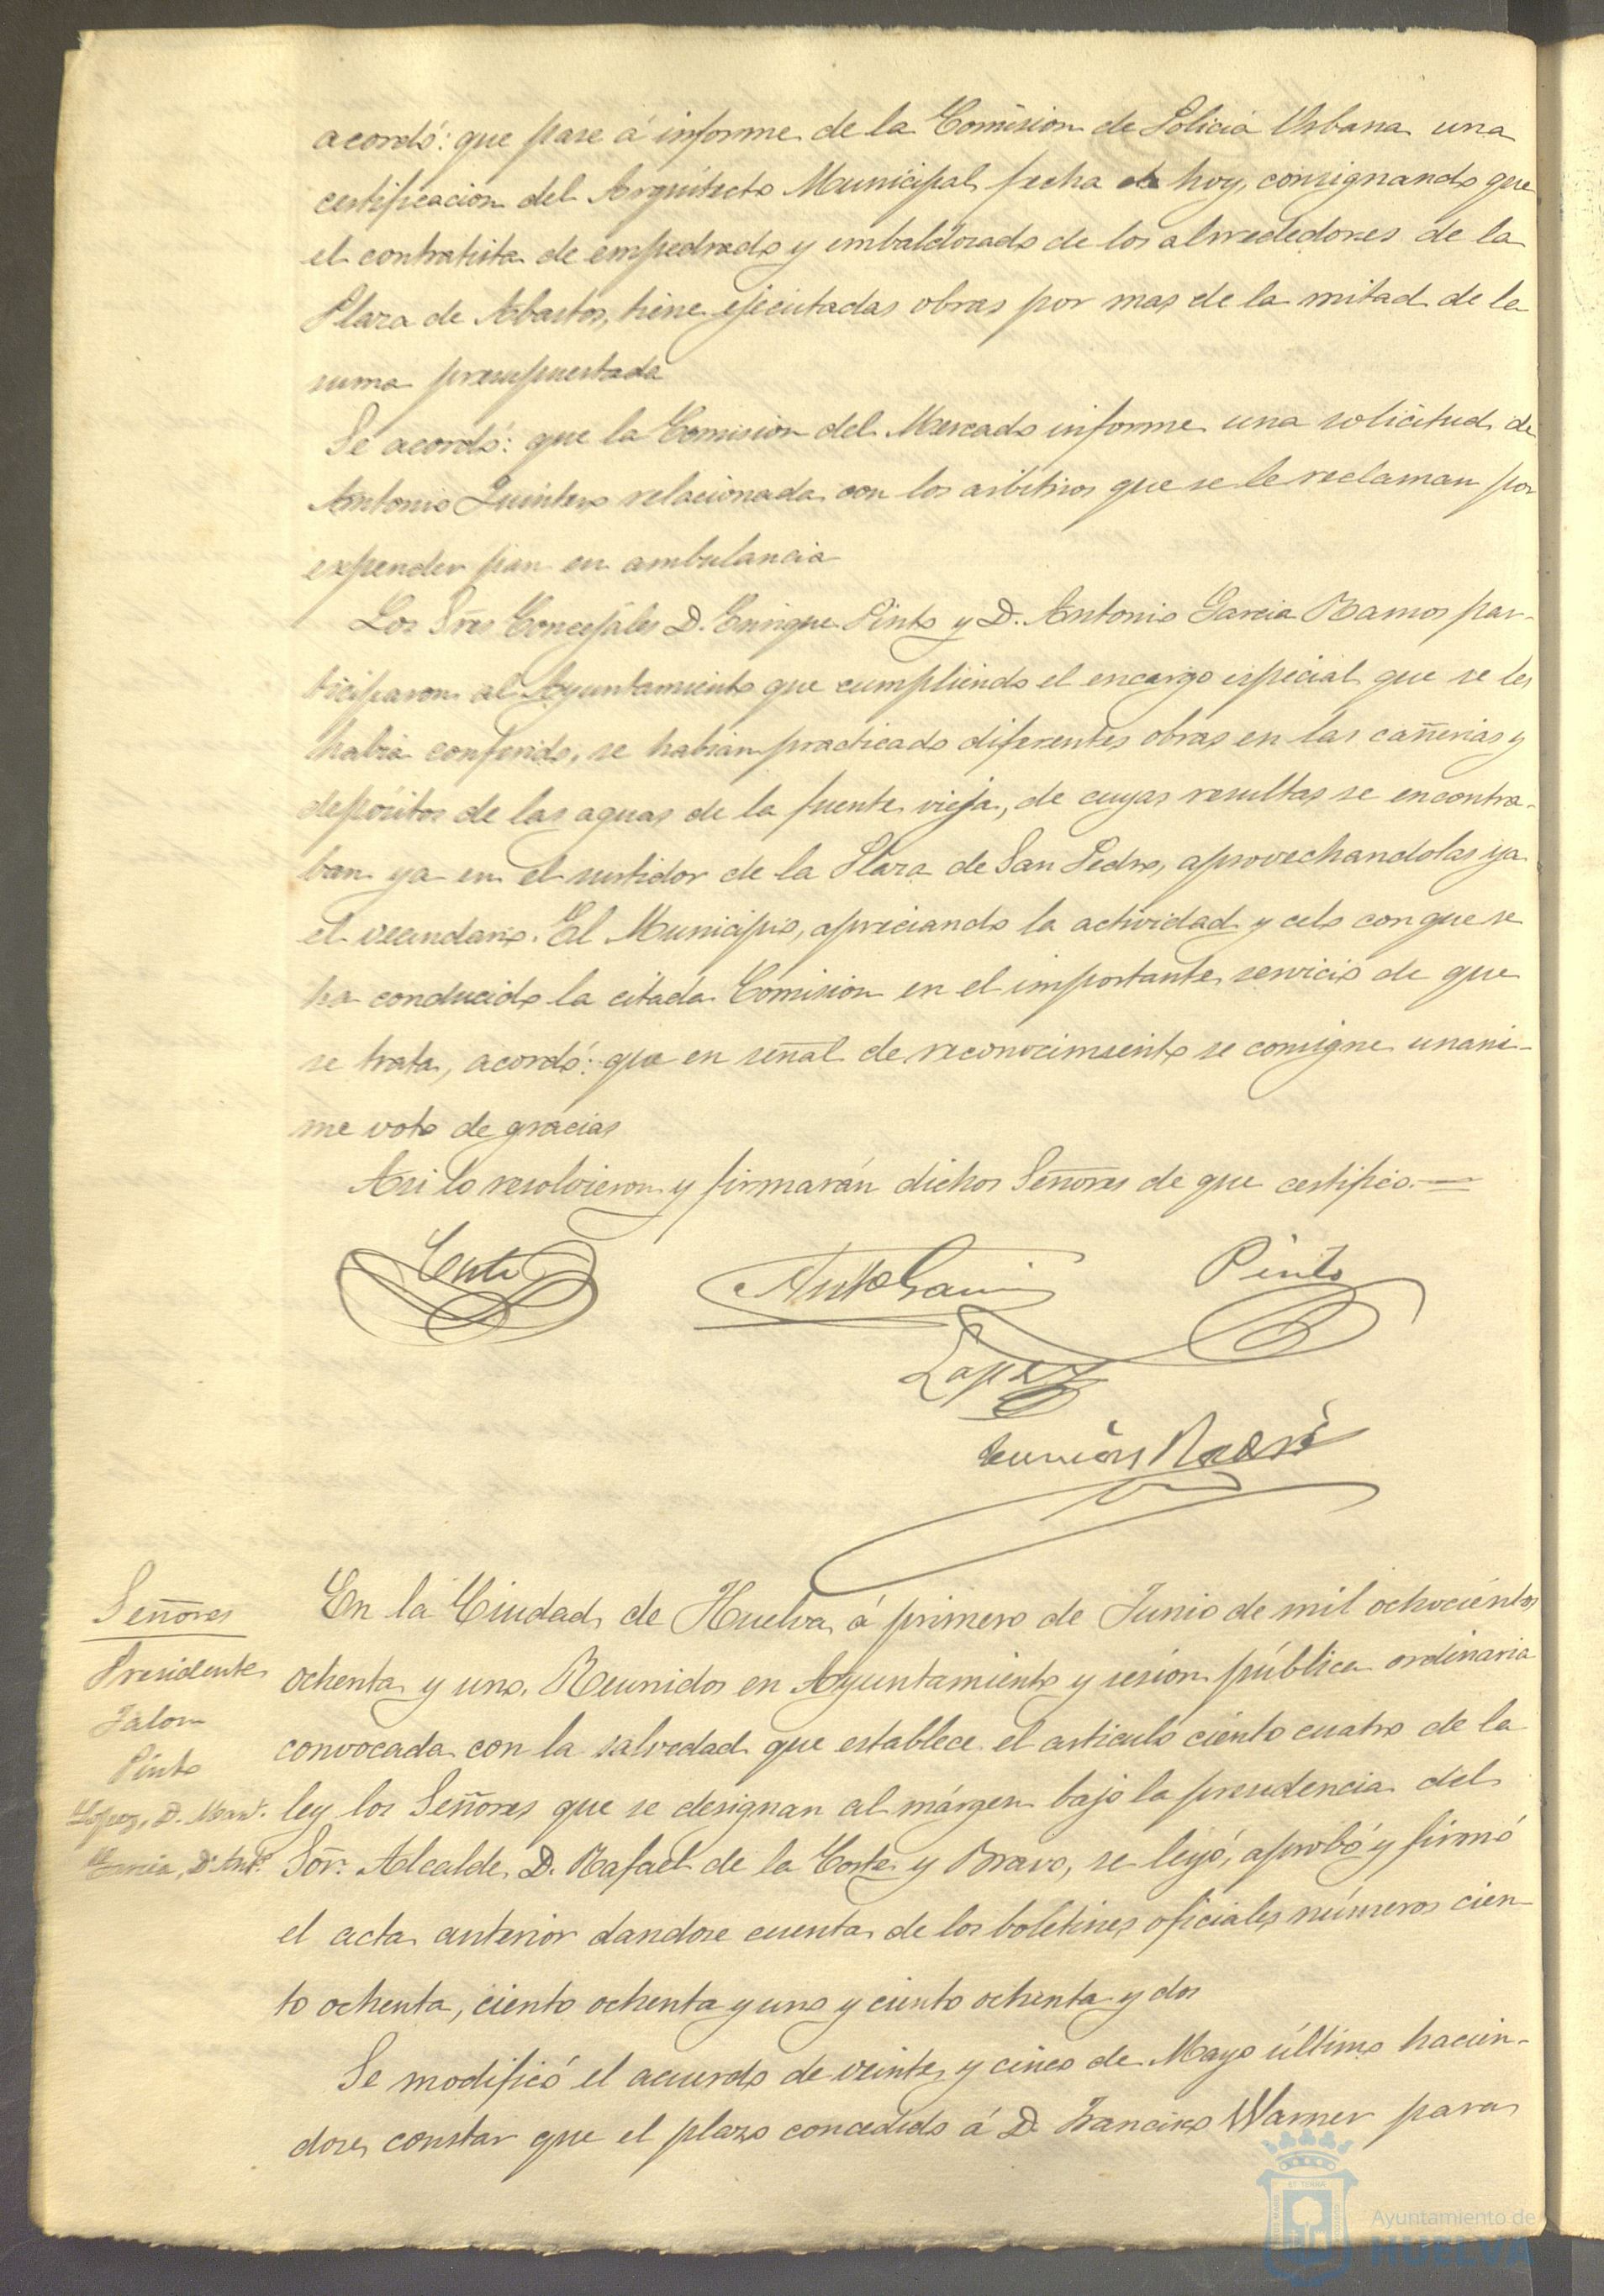 acordó: que pase á informe de la Comision de Policia Urbana una
certificacion del Arquitecto Municipal fecha de hoy, consignando que
el contratista de empedrado y embaldosado de los alrrededores de la
Plaza de Abastos, tiene ejecutadas obras por mas de la mitad de la
suma presupuestada
Se acordó: que la Comision del Mercado informe una solicitud de
Antonio Quintero relacionada con los arbitrios que se le reclaman por
expender pan en ambulancia
Los Sres Concejales D. Enrique Pinto y D. Antonio Garcia Ramos par-
ticiparon al Ayuntamiento que cumpliendo el encargo especial que se les
habia conferido, se habian practicado diferentes obras en las cañerias y
depósitos de las aguas de la fuente vieja, de cuyas resultas se encontra-
ban ya en el surtidor de la Plaza de San Pedro, aprovechandolas ya
el vecindario. El Municipio, apreciando la actividad y celo con que se
ha conducido la citada Comision en el importante servicio de que
se trata, acordó: que en señal de reconocimiento se consigne unani-
me voto de gracias
Asi lo resolvieron y firmarán dichos Señores de que certifico.
Corte
Antº Garcia
Pinto
Lopez
Señores
Presidente
Jalon
Pinto
Lopez, D. Manl.
Garcia, D. Antº.
En la Ciudad de Huelva á primero de Junio de mil ochocientos
ochenta y uno. Reunidos en Ayuntamiento y sesion pública ordinaria
convocada con la salvedad que establece el articulo ciento cuatro de la
ley los Señores que se designan al márgen bajo la presidencia del
Sor. Alcalde D. Rafael de la Corte y Bravo, se leyó, aprobó y firmó
el acta anterior dandose cuenta de los boletines oficiales números cien-
to ochenta, ciento ochenta y uno y ciento ochenta y dos
Se modificó el acuerdo de veinte y cinco de Mayo último hacien-
dose constar que el plazo concedido á D. Francisco Warner para
Ayuntamiento de
HUELVA